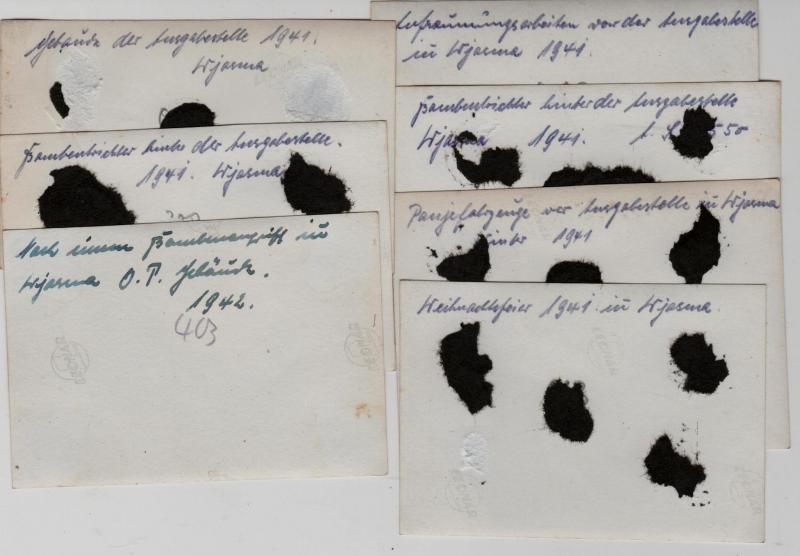 Gebäude der Ausgabestelle 1941.
Wjasma
Bombentrichter hinter der Ausgabestelle.
1941. Wjasma
Nach einem Bombenangriff in
Wjasma O.T. Gebäude.
1942.
403
DEGWAR
DEGWAR
Aufräumungsarbeiten vor der Ausgabestelle
in Wjasma 1941.
Bombentrichter hinter der Ausgabestelle
Wjasma 1941. 550
Panjefahrzeuge vor Ausgabestelle in Wjasma
1941
Weihnachtsfeier 1941. in Wjasma.